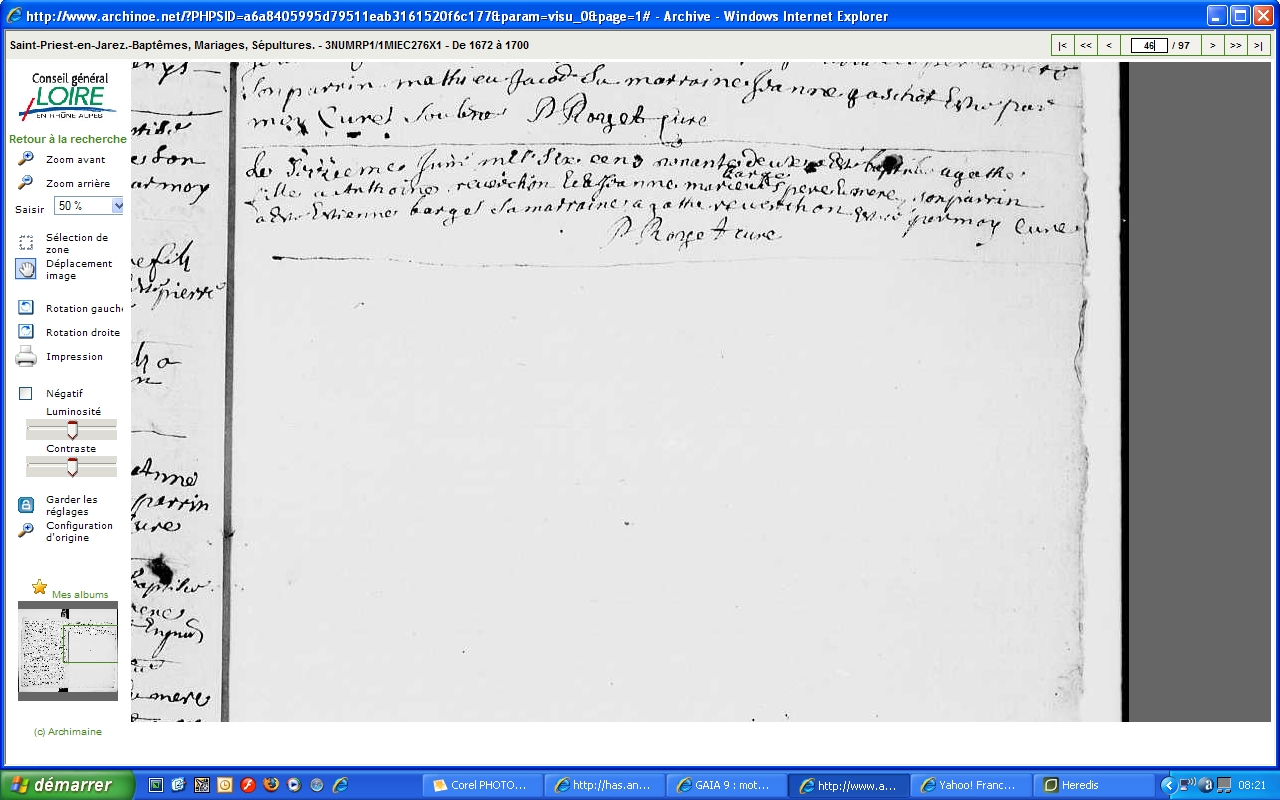 http://www.archinoe.net/?PHPSID=a6a8405995d79511eab3161520f6c177&param=visu_0&page=1# - Archive - Windows Internet Explorer
Saint-Priest-en-Jarez.-Baptêmes, Mariages, Sépultures. - 3NUMRP1/1MIEC276X1 - De 1672 à 1700
|< << < 46 / 97 > >> >|
Conseil général
LOIRE
EN RHÔNE ALPES
Retour à la recherche
Zoom avant
Zoom arrière
Saisir 50 %
Sélection de
zone
Déplacement
image
Rotation gauche
Rotation droite
Impression
Négatif
Luminosité
Contraste
Garder les
réglages
Configuration
d'origine
Mes albums
(c) Archimaine
son parrin mathieu Jacod sa marraine Jeanne gaschet par
moy Cure P Rorget cure
Le Sizieme Juin mil six cens nonante deux est baptisé agathe
barge
fille a Anthoine reverchon et Jeanne pere et mere, son parrin
a este Estienne barge sa marraine agathe reverchon par moy cure
P Rorget cure
son
par moy
pierre
Anne
perrin
cure
mere
démarrer
Corel PHOTO...
http://has.an...
GAIA 9 : mot...
http://www.a...
Yahoo! Franc...
Heredis
08:21